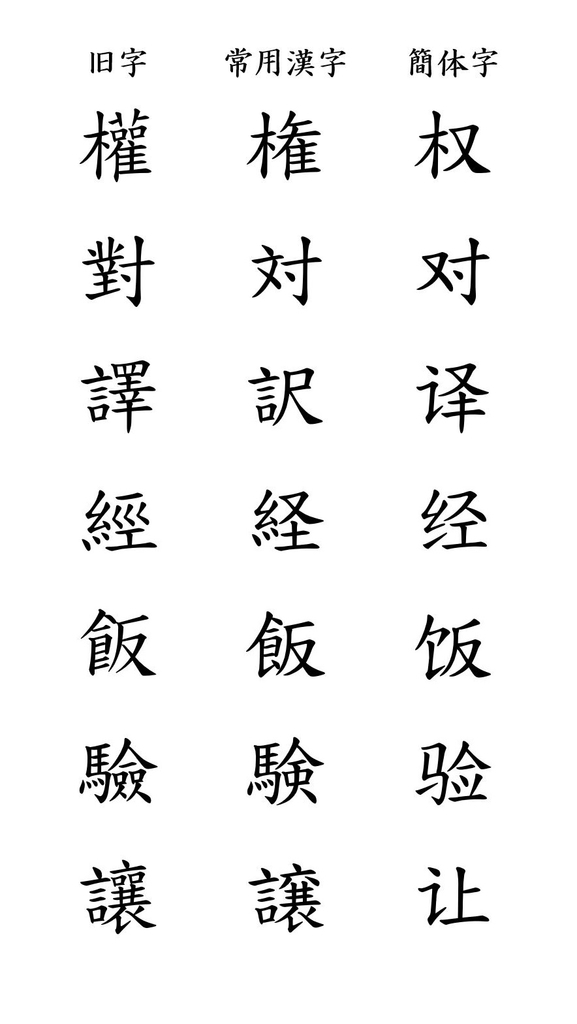 旧字 常用漢字 簡体字
權 権 权
對 対 对
譯 訳 译
經 経 经
飯 飯 饭
驗 験 验
讓 譲 让